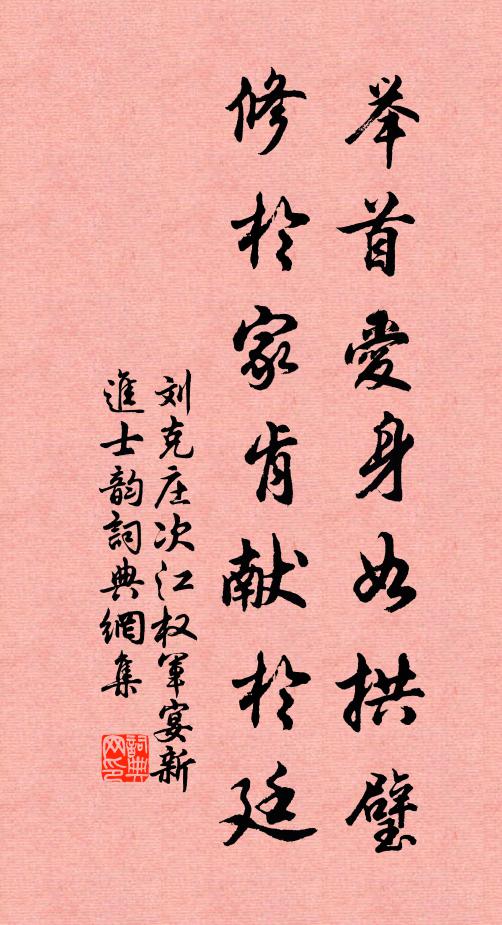 举首爱身如拱璧
修於家肯献於廷
刘克庄次江权军宴新
進士韵詞典網集
詞典网印